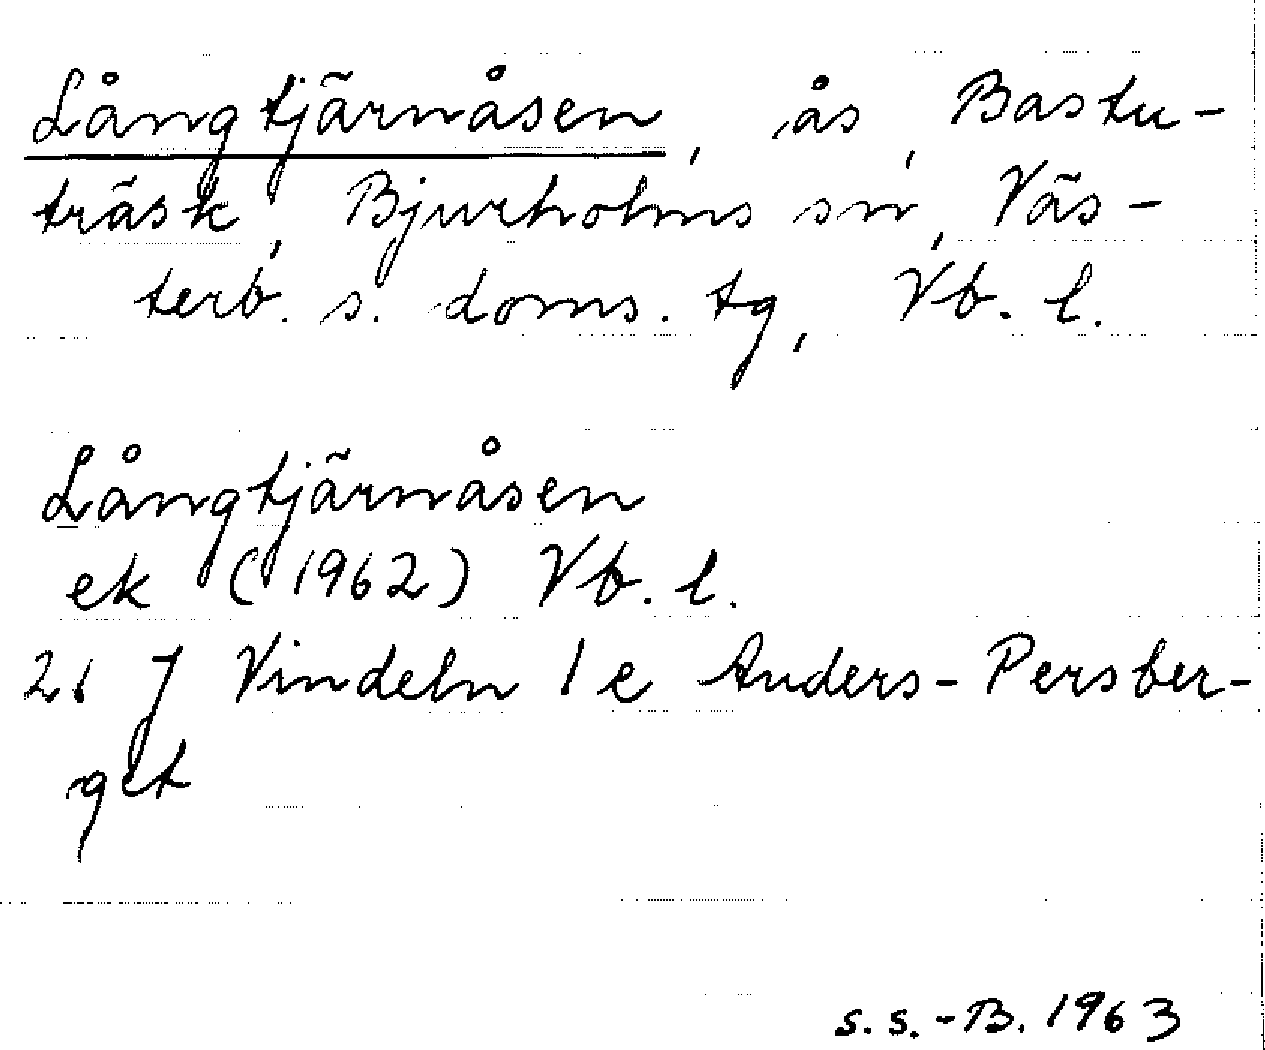 Långtjärnåsen, ås, Bastu-
träsk, Bjurholms sn, Väs-
terb. s. doms. tg, Vb. l.
Långtjärnåsen
ek (1962) Vb. l.
21 J Vindeln 1 e Anders-Persber-
get
s. s. -B. 1963